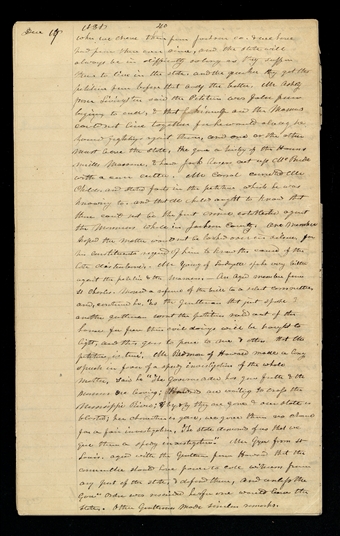 Dec 19 1838 40
who we chose their firm Jackson co. & we have
had peace there ever since, and the state will
always be in difficulty so long as they suffer
them to live in the state and the quicker they get the
petition from before that body the better. Mr Ashly
from Livingston said the Petition was false from
begining to end, & that himself and the Mormons
could not live together for he would always be
found fighting against them, and one or the other
must leave the state, he gave a history of the Hauns
mills Massacre, & how Jack Rogers cut up McBride
with a corn cutter. Mr Corral corrected Mr
Childs, and stated facts in the petition, which he was
knowing to, and that Mr. Childs ought to know that
there can't not be the first crime established against
the Mormons while in Jackson County. One Member
hoped the matter would not be looked over in silence, for
his constituents required of him to know the cause of the
late disturbances. Mr. Young of Lafayette spoke very bitter
against the petition & the Mormons. An Aged member from
St Charles moved a reference of the bill to a select committee
and, continued he, "as the gentleman that just spoke, &
another gentleman want the petition ruled out of the
house for fear their evil doings will be brought to
light, and this goes to prove to me & others that the
petition, is true". Mr Redman of Howard made a long
speech in favor of a speedy investigation of the whole
matter, said he "The Governors order has gone forth & the
Mormons are leaving; Hundreds are waiting to cross the
Mississippi River; & by & by they are gone & our state is
blasted; her character is gone, we gave them no chance
for a fair investigation, The state demands of us that we
give them a speedy investigation" Mr Gyer from St
Louis agreed with the Gentleman from Howard that the
committee should have power to call witnesses from
any part of the state, & defend them, and unless the
Govrs Order was rescinded he for one would leave the
state. Other Gentlemen made similar remarks.